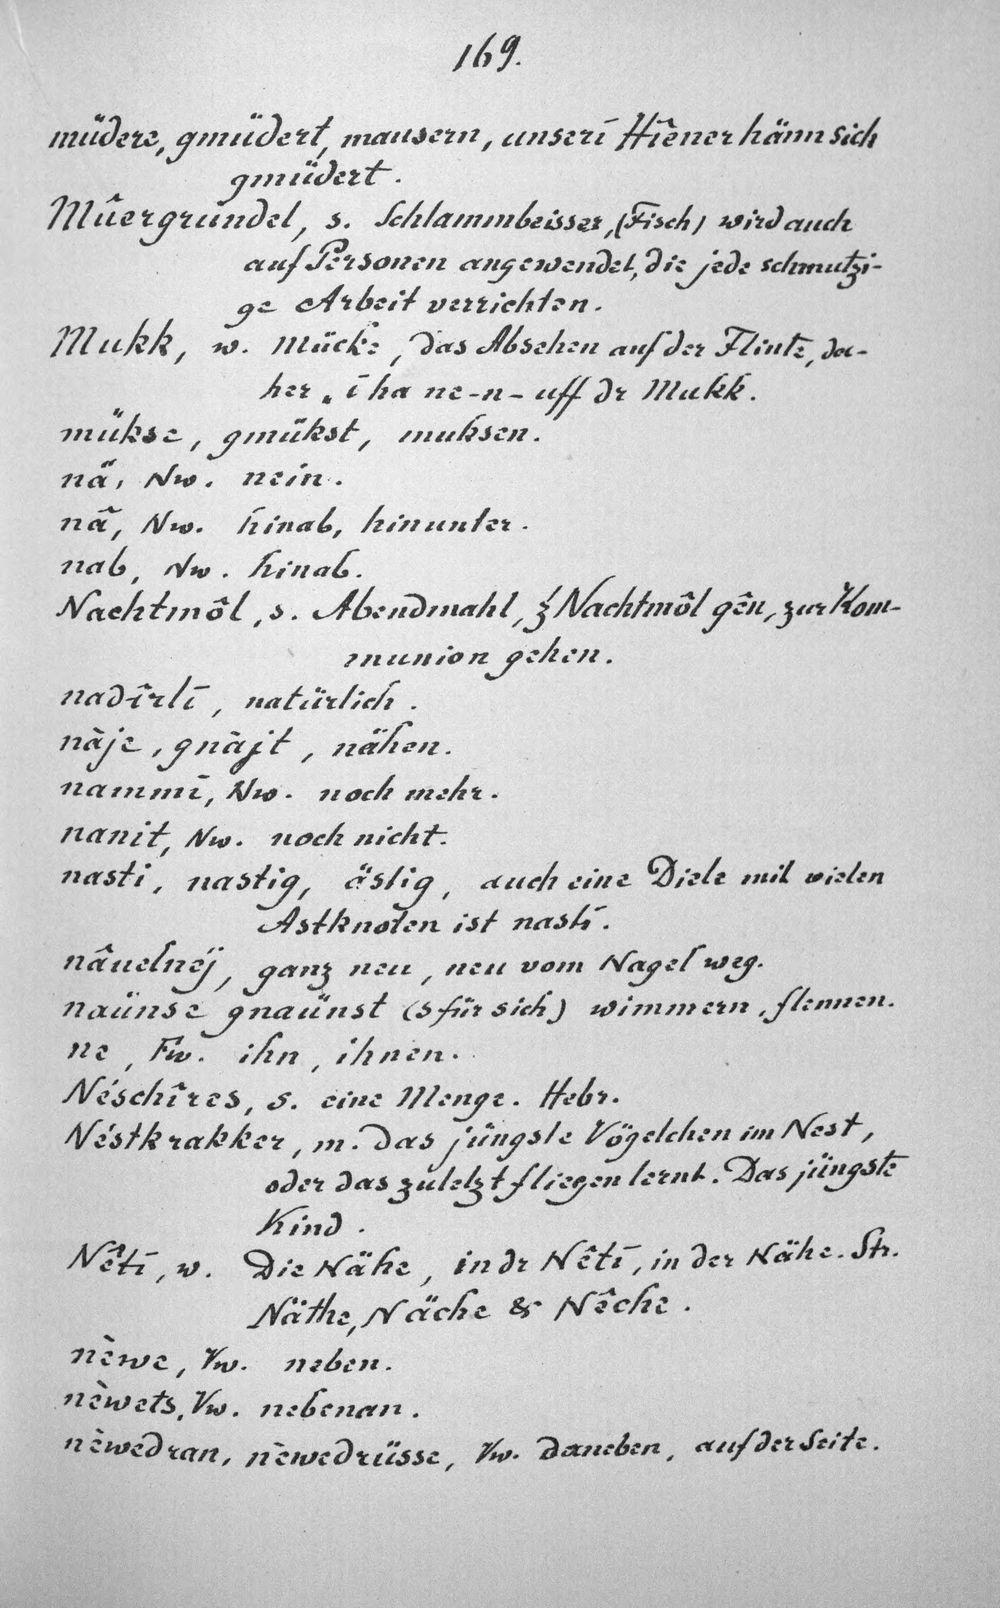 169.
müdere, gmüdert, mausern, unserī Hîener hänn sich
gmüdert.
Mûergrundel, s. Schlammbeisser, (Fisch) wird auch
auf Personen angewendet, die jede schmutzi-
ge Arbeit verrichten.
Mukk, w. Mücke, das Absehen auf der Flinte, da-
her „ī ha ne-n-uff dr Mukk.
mükse, gmükst, muksen.
nä, Nw. nein.
nā, Nw. hinab, hinunter.
nab, Nw. hinab.
Nachtmôl, s. Abendmahl, ź Nachtmôl gên, zur Kom-
munion gehen.
nadîrlī, natürlich.
nàje, gnàjt, nähen.
nammī, Nw. noch mehr.
nanit, Nw. noch nicht.
nasti, nastig, ästig, auch eine Diele mit vielen
Astknoten ist nastī.
nâuelnëj, ganz neu, neu vom Nagel weg.
naünse gnaünst (s für sich) wimmern, flennen.
ne, Fw. ihn, ihnen.
Néschîres, s. eine Menge. Hebr.
Néstkrakker, m. das jüngste Vögelchen im Nest,
oder das zuletzt fliegen lernt. Das jüngste
Kind.
Nêtī, w. Die Nähe, in dr Nêtī, in der Nähe. Str.
Näthe, Näche & Nêche.
nèwe, Vw. neben.
nèwets, Vw. nebenan.
nèwedran, nèwedrüsse, Vw. daneben, auf der Seite.